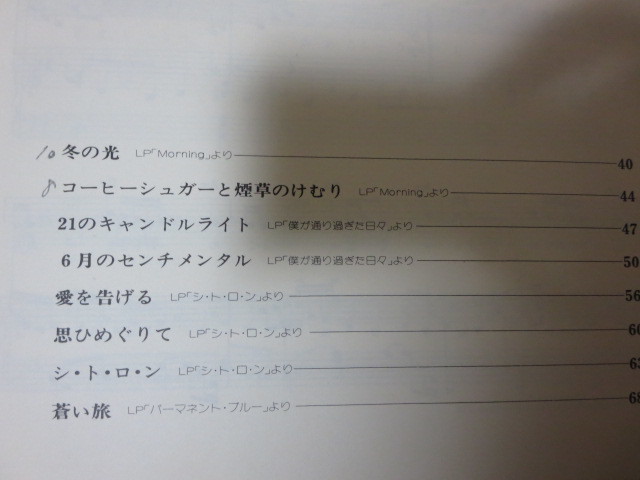 10 冬の光 LP「Morning」より 40
コーヒーシュガーと煙草のけむり LP「Morning」より 44
21のキャンドルライト LP「僕が通り過ぎた日々」より 47
6月のセンチメンタル LP「僕が通り過ぎた日々」より 50
愛を告げる LP「シ・ト・ロ・ン」より 56
思ひめぐりて LP「シ・ト・ロ・ン」より
シ・ト・ロ・ン LP「シ・ト・ロ・ン」より
蒼い旅 LP「パーマネント・ブルー」より